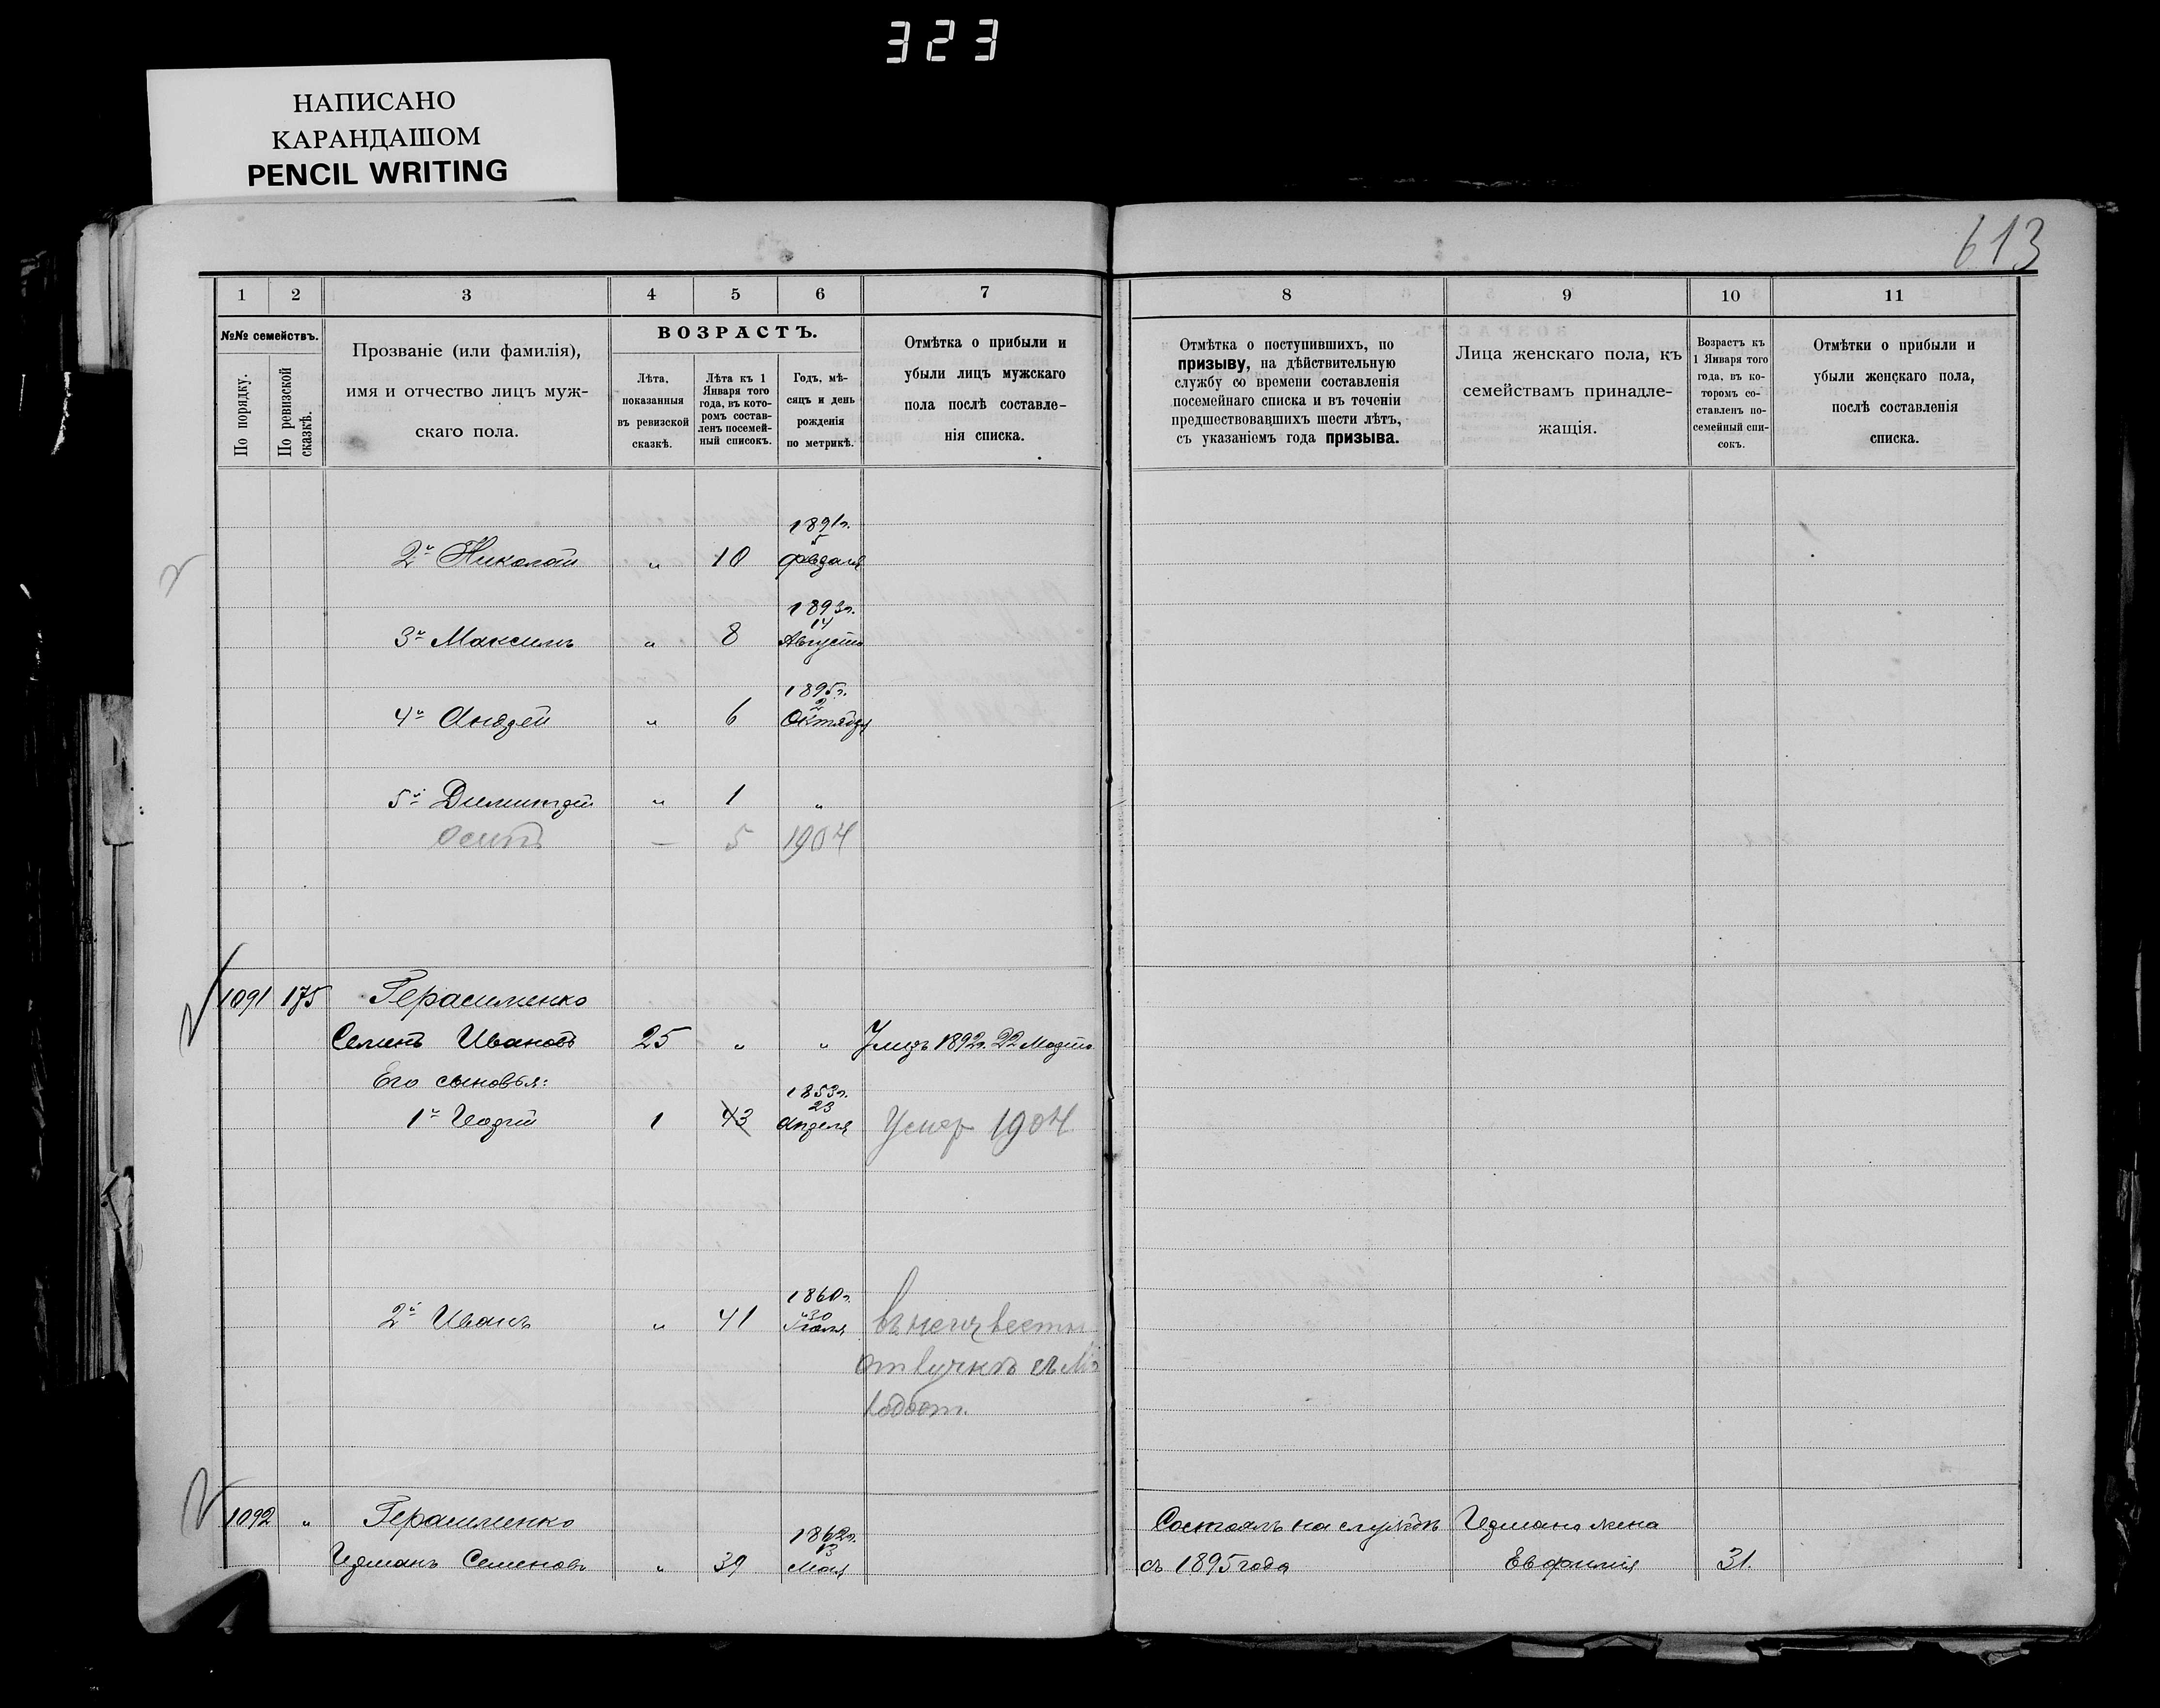 323
НАПИСАНО
КАРАНДАШОМ
PENCIL WRITING
613
1 2 3 4 5 6 7 8 9 10 11
№№ семействъ.
По порядку.
По ревизской сказкѣ.
Прозваніе (или фамилія),
имя и отчество лицъ муж-
скаго пола.
ВОЗРАСТЪ.
Лѣта,
показанныя
въ ревизской
сказкѣ.
Лѣта къ 1
Января того
года, въ кото-
ромъ состав-
ленъ посемей-
ный списокъ.
Годъ, мѣ-
сяцъ и день
рожденія
по метрикѣ.
Отмѣтка о прибыли и
убыли лицъ мужскаго
пола послѣ составле-
нія списка.
Отмѣтка о поступившихъ, по
призыву, на дѣйствительную
службу со времени составленія
посемейнаго списка и въ теченіи
предшествовавшихъ шести лѣтъ,
съ указаніемъ года призыва.
Лица женскаго пола, къ
семействамъ принадле-
жащія.
Возрастъ къ
1 Января того
года, въ ко-
торомъ со-
ставленъ по-
семейный спи-
сокъ.
Отмѣтки о прибыли и
убыли женскаго пола,
послѣ составленія
списка.
1891г.
5
2й Николай " 10 Февраля
1893г.
14
3й Максимъ " 8 Августа
1895г.
2
4й Андрей " 6 Октября
5й Димитрій " 1 "
Осипъ — 5 1904
1091 175 Герасименко
Семенъ Ивановъ 25 " " Умеръ 1892г. 22 Марта
Его сыновья:
1853г.
23
1й Георгій 1 43 Апреля Умер 1904
1860г.
30
2й Иванъ " 41 Іюля въ неизвестн
отлучкѣ
1092 " Герасименко Состоялъ на службѣ Германа жена
1862г.
13
Германъ Семеновъ " 39 Мая съ 1895 года Евфимія 31.